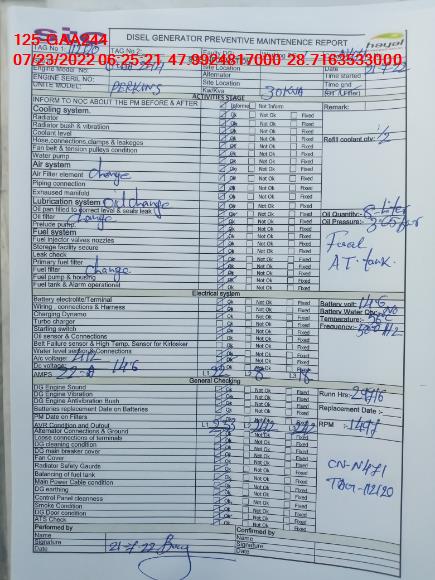 DISEL GENERATOR PREVENTIVE MAINTENENCE REPORT
hayal
125-GAA244
TAG No 1:
TAG No.2:
07/23/2022 06:25:21 47.9924817000 28.7163533000
Site Location
Engine Model No:
Alternator
Time started
ENGINE SERIL NO:
Site Location
Time end
UNITE MODEL: PERKINS
Kw/Kva 30KVA
ACTIVITIES STAGE
INFORM TO NOC ABOUT THE PM BEFORE & AFTER
Informe Not Inform
Remark:
Cooling system.
Radiator Ok Not Ok Fixed
Radiator bush & vibration Ok Not Ok Fixed
Coolant level Ok Not Ok Fixed
Refill coolant qty: 1/2
Hose,connections,clamps & leakoges Ok Not Ok Fixed
Fan belt & tension pulleys condition Ok Not Ok Fixed
Water pump Ok Not Ok Fixed
Air system
Air Filter element change Ok Not Ok Fixed
Piping connection Ok Not Ok Fixed
Exhausted manifold Ok Not Ok Fixed
Lubrication system oil change
Oil pan filled to correct level & seals leak Ok Not Ok Fixed
Oil Quantity:- 8-Liter
Oil filter change Ok Not Ok Fixed
Oil Pressure:-
Prelude pump: Ok Not Ok Fixed
Fuel system
Fuel
Fuel injector valves nozzles Ok Not Ok Fixed
Storage facility secure Ok Not Ok Fixed
AT-tank.
Leak check Ok Not Ok Fixed
Primary fuel filter Ok Not Ok Fixed
Fuel filter change Ok Not Ok Fixed
Fuel pump & housing Ok Not Ok Fixed
Fuel tank & Alarm operational Ok Not Ok Fixed
Electrical system
Battery electrolite/Terminal Ok Not Ok Fixed
Battery volt: 14.6
Wiring , connections & Harness Ok Not Ok Fixed
Battery Water Qty: NO
Charging Dynamo Ok Not Ok Fixed
Temperature:-
Turbo charger Ok Not Ok Fixed
Frequency:-
Starting switch Ok Not Ok Fixed
Oil sensor & Connections Ok Not Ok Fixed
Belt Failure sensor & High Temp. Sensor for Kirloeker Ok Not Ok Fixed
Water level sensor & Connections Ok Not Ok Fixed
A/c voltage: 412
Dc voltage: 14.6
AMPS 22-A L1 22 L2 8 L3 18
General Checking
DG Engine Sound Ok Not Ok Fixed
Runn Hrs: 29716
DG Engine Vibration Ok Not Ok Fixed
DG Engine Antivibration Bush Ok Not Ok Fixed
Batteries replacement Date on Batteries Ok Not Ok Fixed
Replacement Date :-
PM Date on Filters Ok Not Ok Fixed
AVR Condition and Output L1 L2 242 L3 242
RPM :- 1498
Alternator Connections & Ground Ok Not Ok Fixed
Loose connections of terminals Ok Not Ok Fixed
DG cleaning condition Ok Not Ok Fixed
DG main breaker cover Ok Not Ok Fixed
Fan Cover Ok Not Ok Fixed
CN-N471
Radiator Safety Gaurde Ok Not Ok Fixed
Balancing of fuel tank Ok Not Ok Fixed
Main Power Cable condition Ok Not Ok Fixed
DG earthing Ok Not Ok Fixed
Control Panel cleanness Ok Not Ok Fixed
Smoke Condition Ok Not Ok Fixed
DG Door condition Ok Not Ok Fixed
ATS Check Ok Not Ok Fixed
Performed by
Confirmed by
Name
Name
Signature
Signature
Date 21-7-22
Date